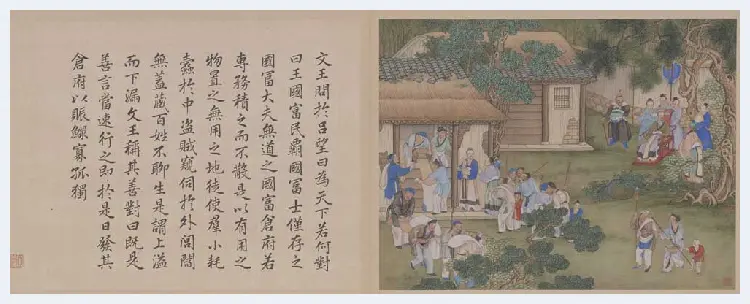 文王問於呂望曰為天下若何對
曰王國富民霸國富士僅存之
國富大夫無道之國富倉府若
專務積之而不散是以有用之
物置之無用之地徒使羣小耗
蠹於中盜賊窺伺於外閭閻
無蓋藏百姓不聊生是謂上溢
而下漏文王稱其善對曰既是
善言當速行之即於是日發其
倉府以賑鰥寡孤獨